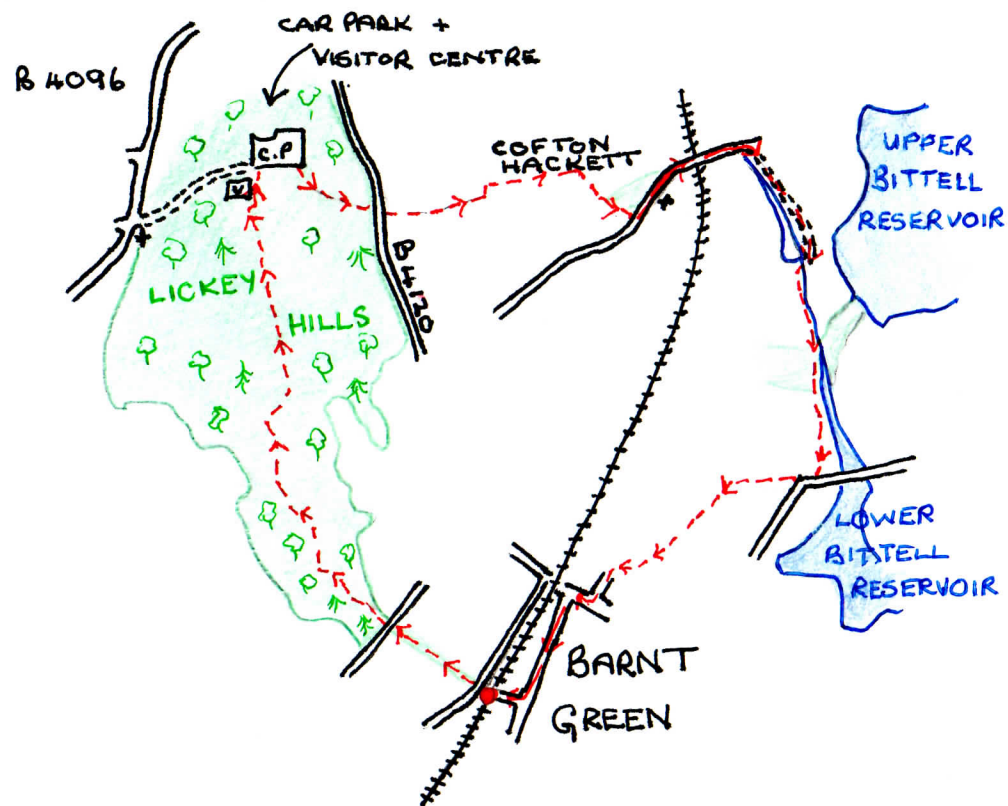 CAR PARK +
VISITOR CENTRE
B 4096
C.P
V
COFTON
HACKETT
UPPER
BITTELL
RESERVOIR
B4120
LICKEY
HILLS
LOWER
BITTELL
RESERVOIR
BARNT
GREEN